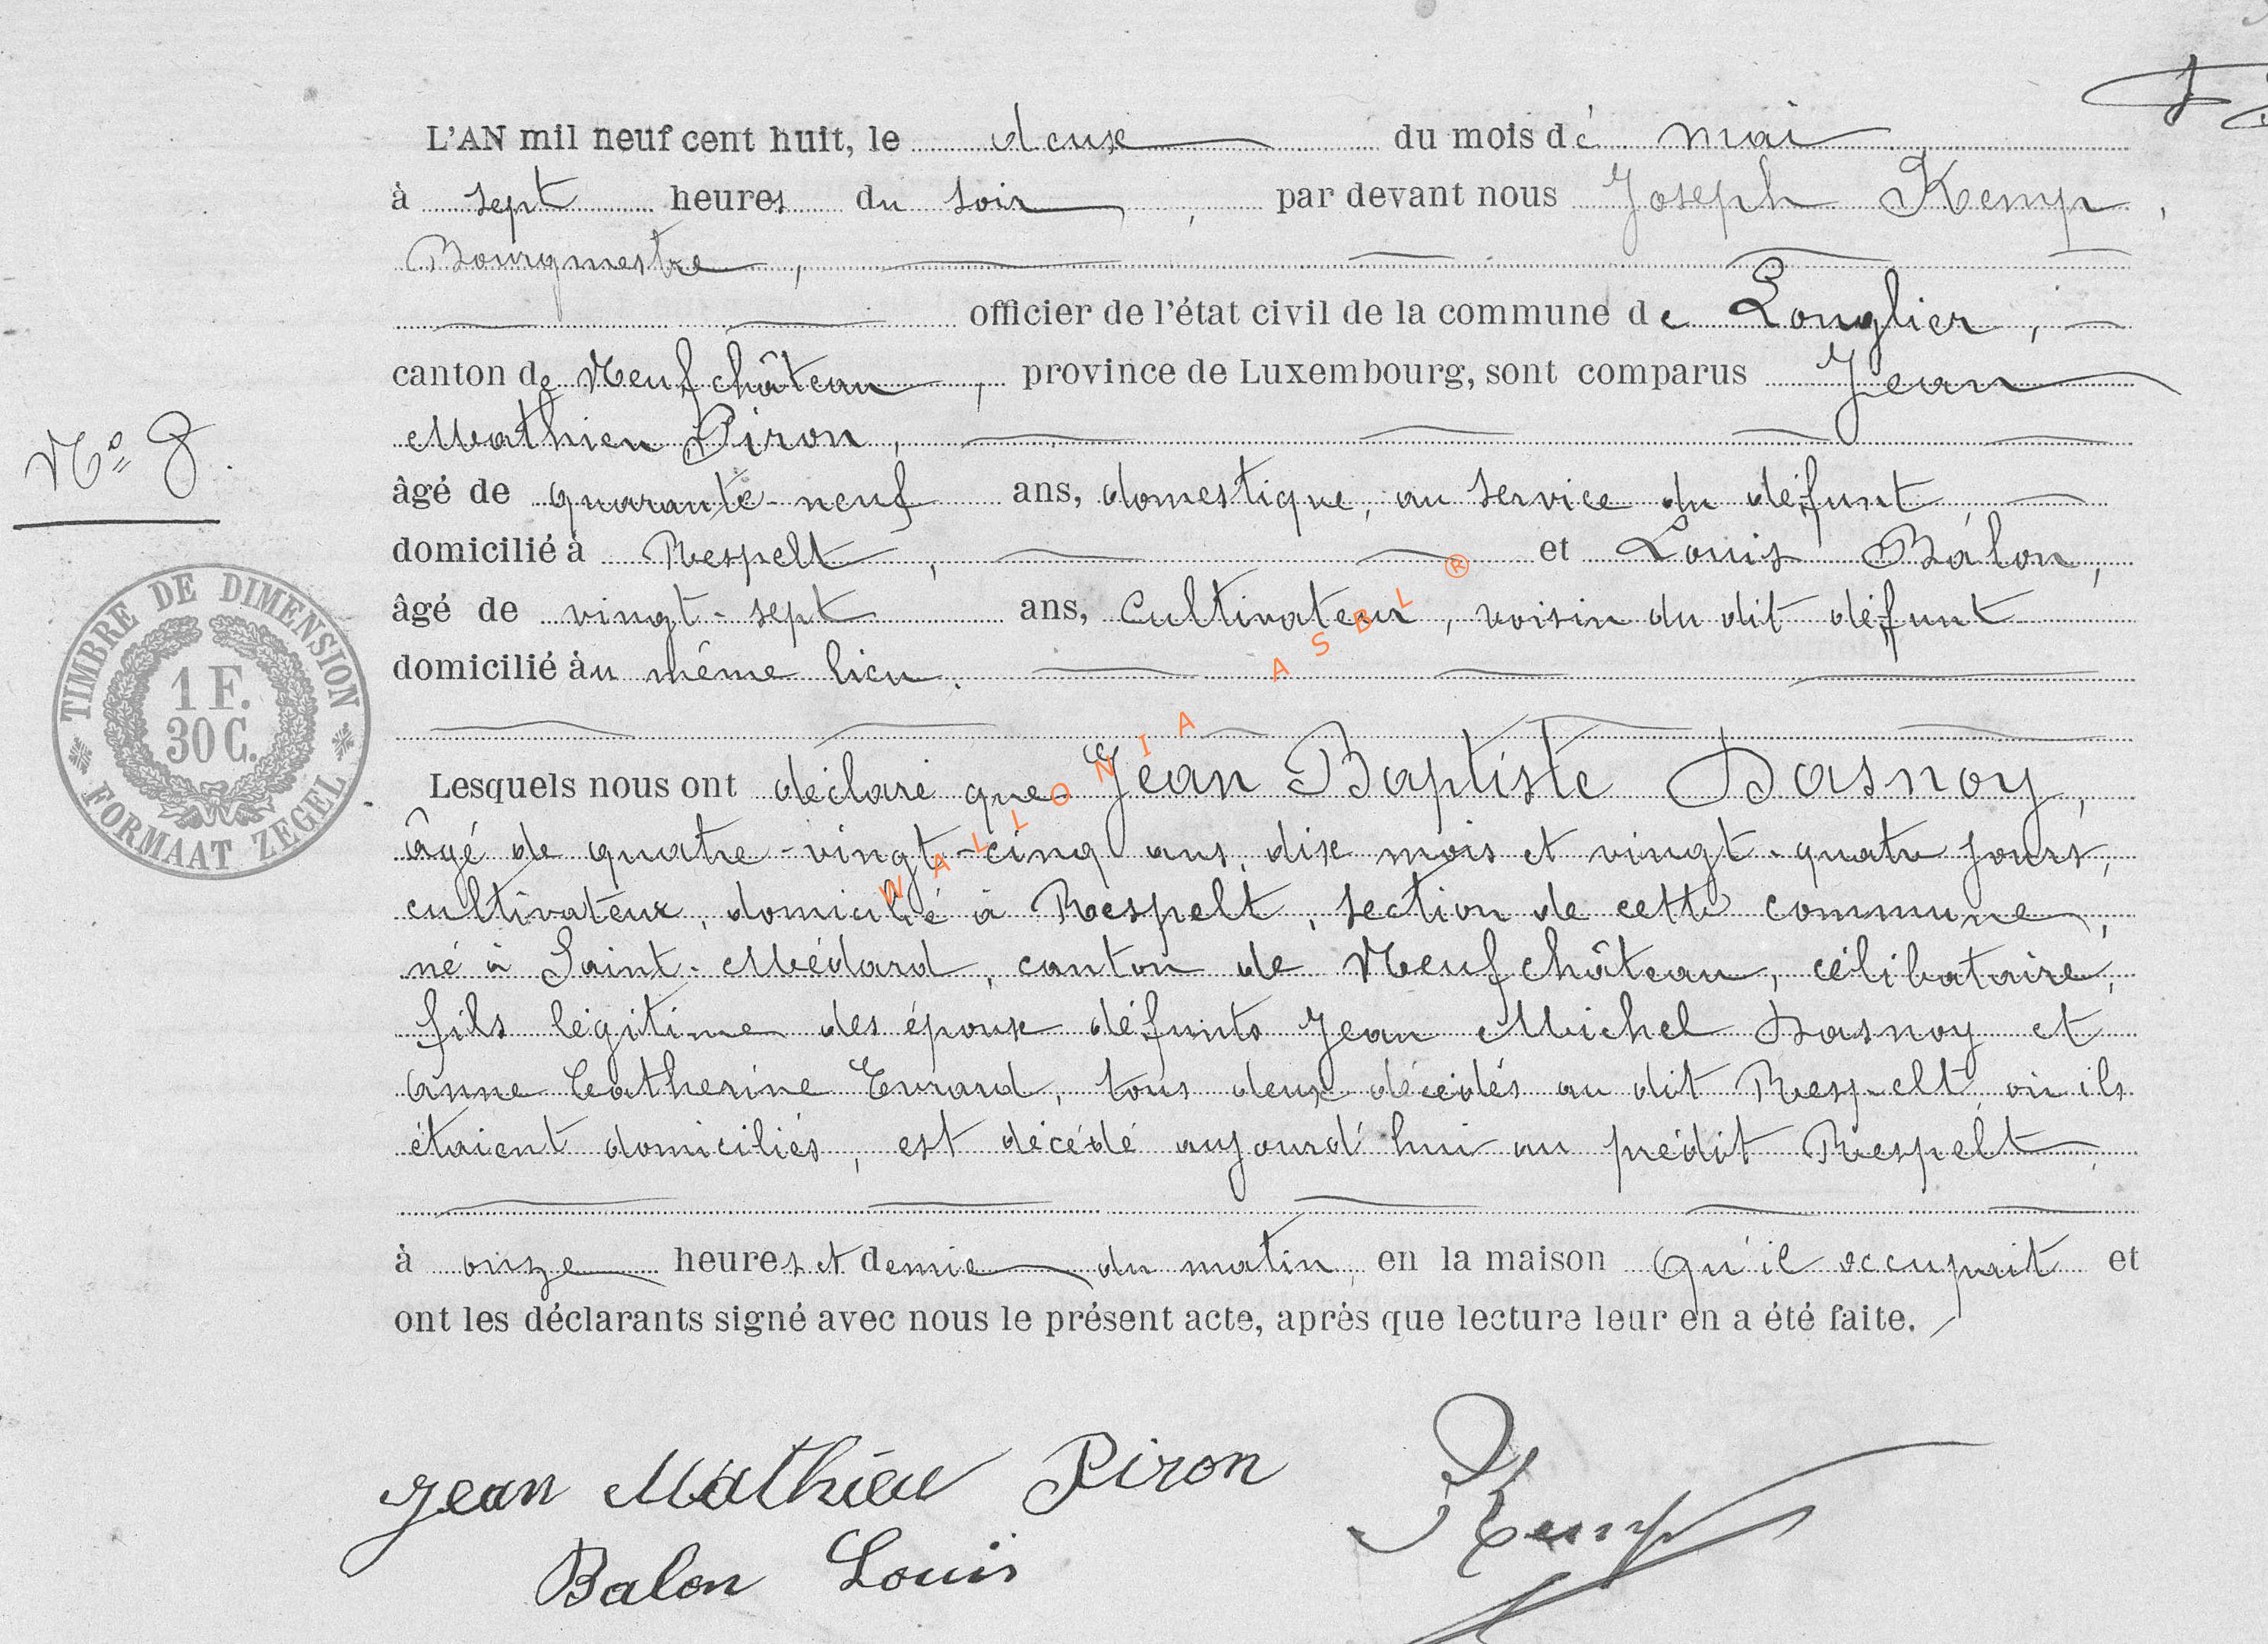 L'AN mil neuf cent huit, le deux du mois de mai
à sept heures du soir, par devant nous Joseph Kemp,
Bourgmestre,
officier de l'état civil de la commune de Longlier,
canton de Neufchâteau, province de Luxembourg, sont comparus Jean
Mathieu Piron,
N° 8.
âgé de quarante-neuf ans, domestique, au service du défunt,
domicilié à Respelt, et Louis Balon,
âgé de vingt-sept ans, Cultivateur, voisin du dit défunt
domicilié au même lieu.
TIMBRE DE DIMENSION
1 F.
30 C.
FORMAAT ZEGEL
Lesquels nous ont déclaré que Jean Baptiste Dasnoy,
âgé de quatre-vingt-cinq ans, dix mois et vingt-quatre jours,
cultivateur, domicilié à Respelt, section de cette commune,
né à Saint-Médard, canton de Neufchâteau, célibataire,
fils légitime des époux défunts Jean Michel Dasnoy et
Anne Catherine Evrard, tous deux décédés au dit Respelt, où ils
étaient domiciliés, est décédé aujourd'hui au prédit Respelt,
à onze heures et demie du matin, en la maison qu'il occupait et
ont les déclarants signé avec nous le présent acte, après que lecture leur en a été faite.
WALLONIA ASBL ®
Jean Mathieu Piron
Kemp
Balon Louis